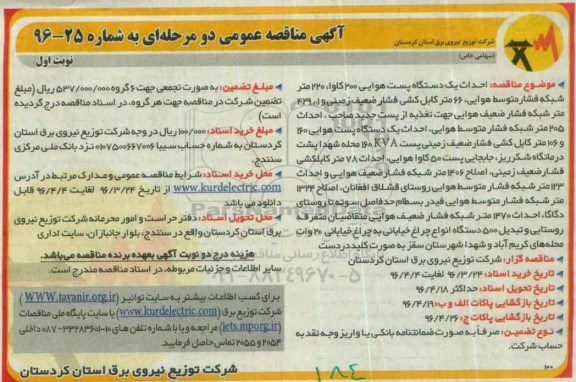 شرکت توزیع نیروی برق استان کردستان
(سهامی خاص)
آگهی مناقصه عمومی دو مرحله‌ای به شماره ۲۵-۹۶
نوبت اول
موضوع مناقصه: احداث یک دستگاه پست هوایی ۲۰۰ کاوا، ۲۲۰ متر
شبکه فشار متوسط هوایی، ۶۶ متر کابل کشی فشار ضعیف زمینی و ۴۳۹
متر شبکه فشار ضعیف هوایی جهت تغذیه از پست جدید صاحب، احداث
۲۰۵ متر شبکه فشار متوسط هوایی، احداث یک دستگاه پست هوایی ۱۶۰
و ۱۰۶ متر کابل کشی فشار ضعیف زمینی پست ۱۶۰ KVA محله شهدا پشت
درمانگاه شکرریز، جابجایی پست ۵۰ کاوا هوایی، احداث ۷۸ متر کابلکشی
فشار ضعیف زمینی، اصلاح ۱۴۰۶ متر شبکه فشار ضعیف هوایی و احداث
۱۲۳ متر شبکه فشار متوسط هوایی روستای قشلاق افغانان، اصلاح ۱۳۲۴
متر شبکه فشار متوسط هوایی فیدر بسطام حدفاصل سوته تا روستای
دگاگا، احداث ۱۴۷۰ متر شبکه فشار ضعیف هوایی متقاضیان متفرقه
روستایی و تبدیل ۵۰۰ دستگاه انواع چراغ خیابانی به چراغ خیابانی ۲۰ وات
محله‌های کریم آباد و شهدا شهرستان سقز به صورت کلیددردست
مناقصه گزار: شرکت توزیع نیروی برق استان کردستان
تاریخ خرید اسناد: ۹۶/۳/۲۴ لغایت ۹۶/۴/۴
تاریخ تحویل اسناد: حداکثر ۹۶/۴/۱۸
تاریخ بازگشایی پاکات الف و ب: ۹۶/۴/۱۹
تاریخ بازگشایی پاکات ج: ۹۶/۴/۲۶
نوع تضمین: صرفاً به صورت ضمانتنامه بانکی یا واریز وجه نقد به
حساب شرکت.
مبلغ تضمین: به صورت تجمعی جهت ۶ گروه ۵۳۷/۰۰۰/۰۰۰ ریال (مبلغ
تضمین شرکت در مناقصه جهت هر گروه، در اسناد مناقصه درج گردیده
است)
مبلغ خرید اسناد: ۱۰۰/۰۰۰ ریال در وجه شرکت توزیع نیروی برق استان
کردستان به شماره حساب سیبا ۰۱۰۷۵۰۰۶۶۷۰۰۶ نزد بانک ملی مرکزی
سنندج.
محل خرید اسناد: شرایط مناقصه عمومی و مدارک مرتبط در آدرس
www.kurdelectric.com از تاریخ ۹۶/۳/۲۴ لغایت ۹۶/۴/۴ قابل
دانلود می باشد
محل تحویل اسناد: دفتر حراست و امور محرمانه شرکت توزیع نیروی
برق استان کردستان واقع در سنندج، بلوار جانبازان، سایت اداری
هزینه درج دو نوبت آگهی بعهده برنده مناقصه می‌باشد.
سایر اطلاعات و جزئیات مربوطه، در اسناد مناقصه مندرج است.
برای کسب اطلاعات بیشتر به سایت توانیر (WWW.tavanir.org.ir)
شرکت توزیع برق (www.kurdelectric.com) یا سایت پایگاه ملی مناقصات
(iets.mporg.ir) مراجعه و یا با شماره تلفن های ۱۰-۳۳۲۸۳۶۰۱-۰۸۷ داخلی
۲۰۵۴ و ۲۰۵۵ تماس حاصل فرمایید.
شرکت توزیع نیروی برق استان کردستان
۱۰۰
۱۸۴